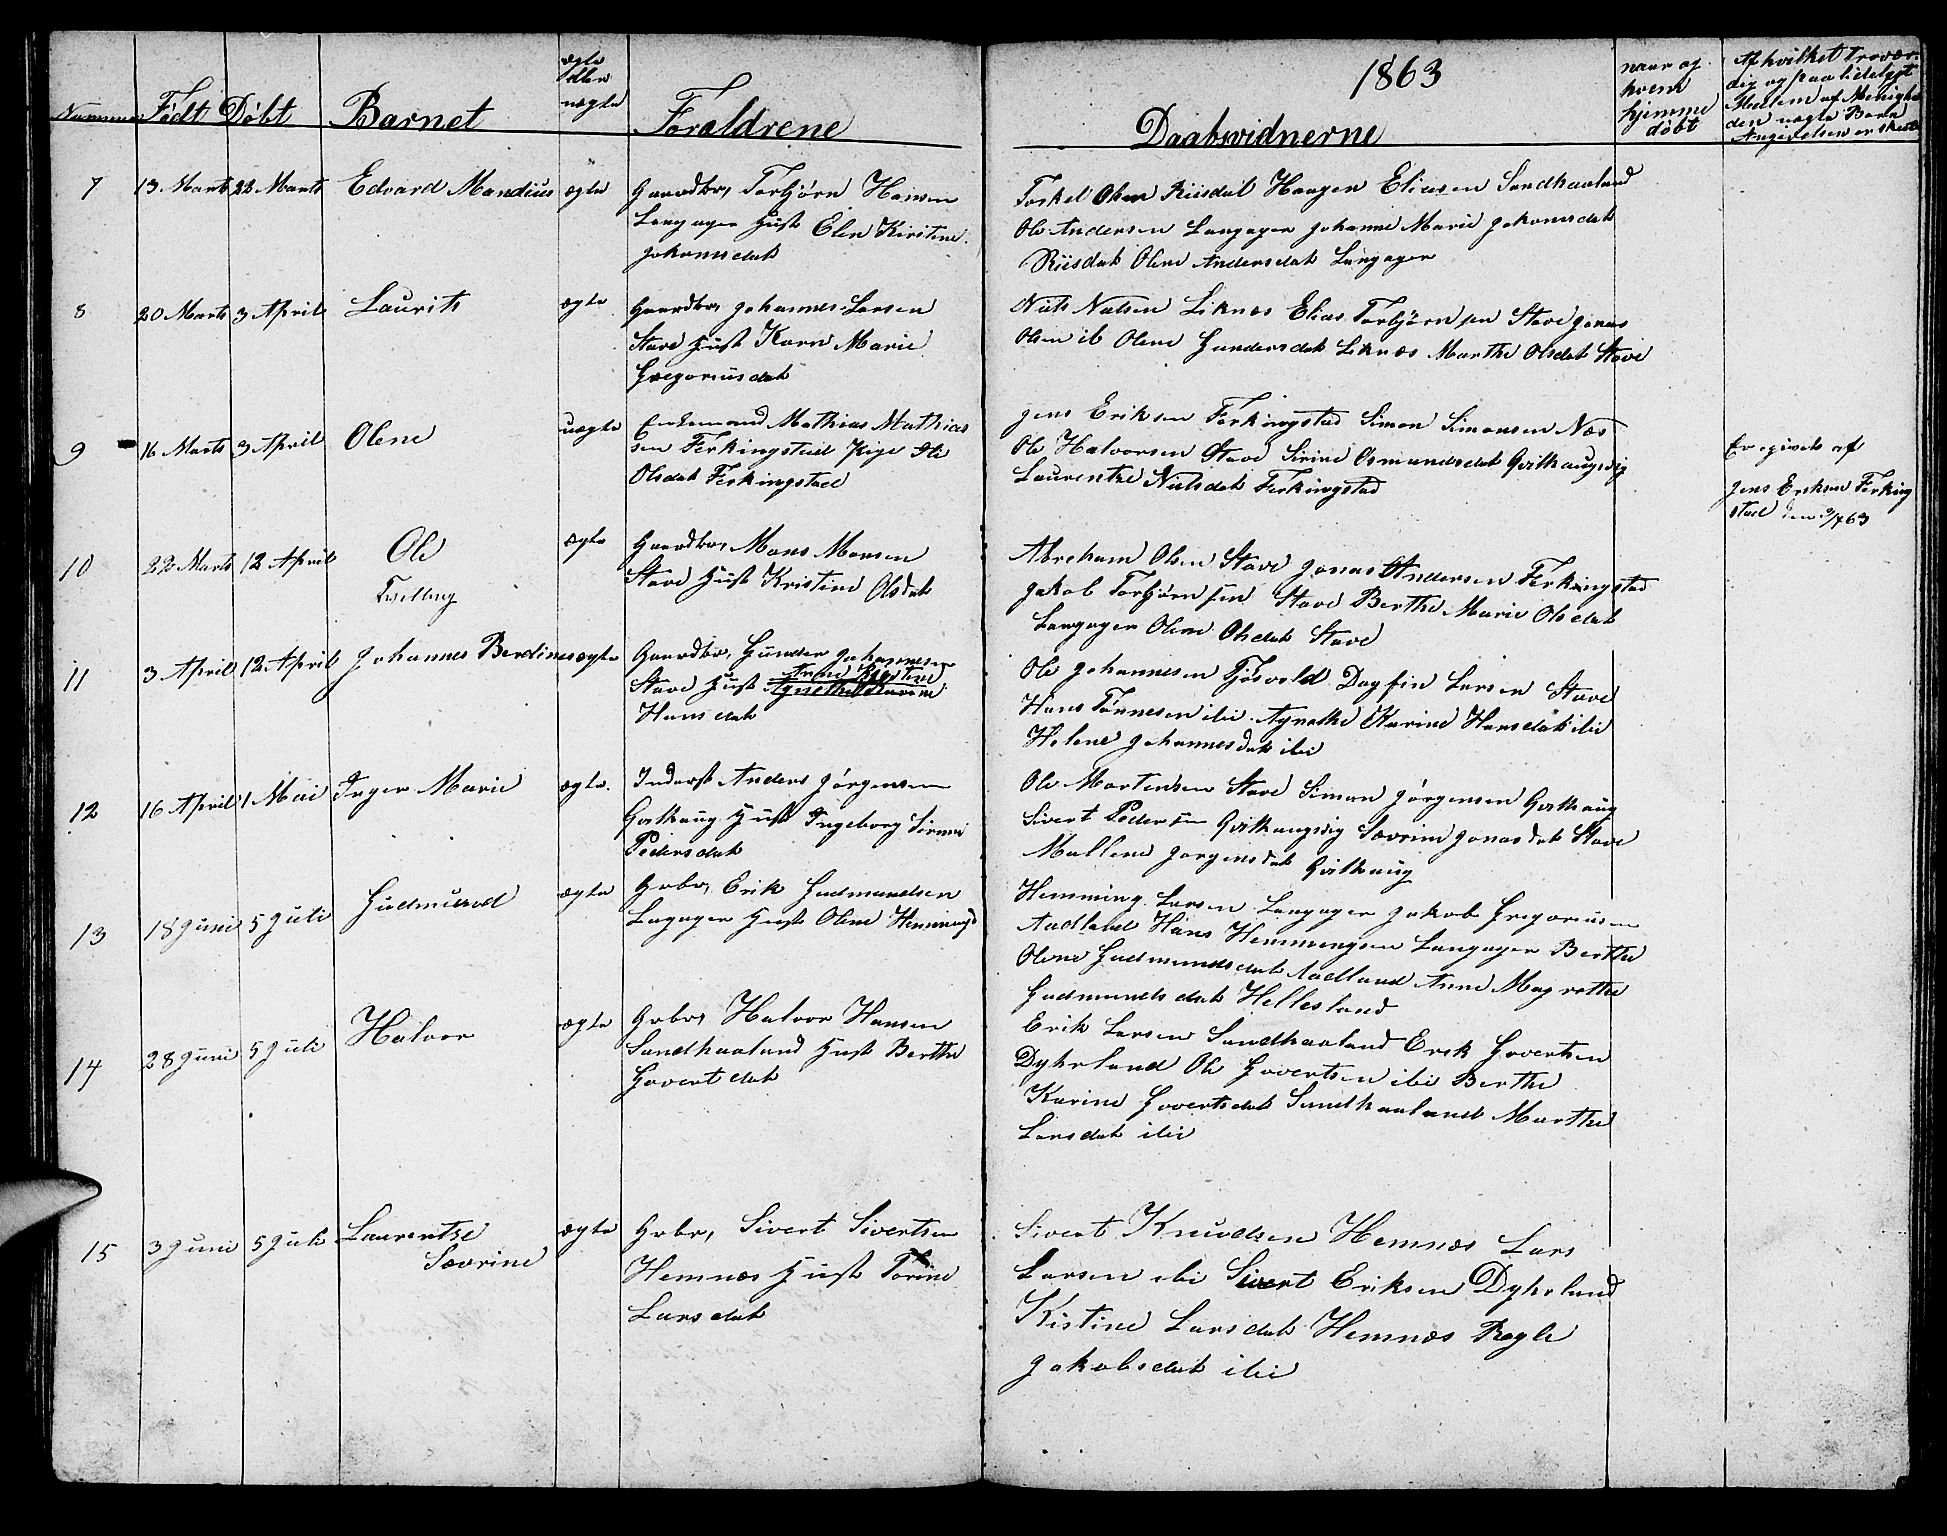 1863
Nummer Født Døbt Barnet ægte eller uægte Forældrene Daabsvidnerne naar og hvem hjemme døbt Af hvilket troværdig og paalideligt Medlem af Menigheden uægte Barn Angivelsen er skeet
7 13 Marts 22 Marts Edvard Mandius ægte Gaardbr, Torbjørn Hansen
Langager Hust Elen Kirstine
Johannesdat
Torkel Olsen Riisdal Haagen Eliasen Sandhaaland
Ole Andersen Langager Johanne Marie Johannesdat
Riisdal Olene Andersdat Langager
8 20 Marts 3 April Laurits ægte Gaardbr, Johannes Larsen
Stave Hust Karn Marie
Gregoriusdat
Niels Nielsen Liknæs Elias Torbjørnsen Stave Jonas
Olsen ib Olene Gundersdat Liknæs Marthe Olsdat Stave
9 16 Marts 3 April Olene uægte Enkemand Mathias Mathias
sen Ferkingstad Pige
Olsdat Ferkingstad
Jens Eriksen Ferkingstad Simon Simonsen Næs
Ole Halvorsen Stave Sirine Osmundsdat Qvilhaugsvig
Laurentze Nielsdat Ferkingstad
Er opgivet af
Jens Eriksen Ferking
stad den 3/4 63
10 22 Marts 12 April Ole
Tvilling
ægte Gaardbr, Mons Monsen
Stave Hust Kristine Olsdat
Abreham Olsen Stave Jonas Andersen Ferkingstad
Jakob Torbjørnsen Stave Berthe Marie Olsdat
Langager Olene Olsdat Stave
11 3 April 12 April Johannes Berdines ægte Gaardbr, Gunder Johannesen
Stave Hust Anne Kirstine
Agnethe Karine
Hansdat
Ole Johannesen Tjøsvold Dagfin Larsen Stave
Hans Tønnesen ibi Agnethe Karine Hansdat ibi
Helene Johannesdat ibi
12 16 April 1 Mai Inger Marie ægte. Inderst Anders Jørgensen
Qvilhaug Hust Ingeborg Sirine
Pedersdat
Ole Mortensen Stave Simon Jørgensen Qvilhaug
Sivert Pedersen Qvilhaugsvig Sævrine Jonasdat Stave
Mallene Jørgensdat Qvilhaug
13 18 Juni 5 Juli Gudmund ægte Grbr, Erik Gudmundsen
Lagager Hust Olene Hemmingsd
Hemming Larsen Langager Jakob Gregoriusen
Aadland Hans Hemmingsen Langager Berthe
Olene Gudmundsdat Aadland Anne Magrethe
Gudmundsdat Hellesland
14 28 Juni 5 Juli Halvor ægte Grbr, Halvor Hansen
Sandhaaland Hust Berthe
Govertsdat
Erik Larsen Sandhaaland Erik Govertsen
Dyhrland Ole Govertsen ibi Berthe
Karine Govertsdat Sandhaaland Marthe
Larsdat ibi
15 3 Juni 5 Juli Laurentze
Sævrine
ægte Grbr, Sivert Sivertsen
Hemnæs Hust Torine
Larsdat
Sivert Knudsen Hemnæs Lars
Larsen ibi Sivert Eriksen Dyhrland
Kistine Larsdat Hemnæs Ragle
Jakobsdat ibi